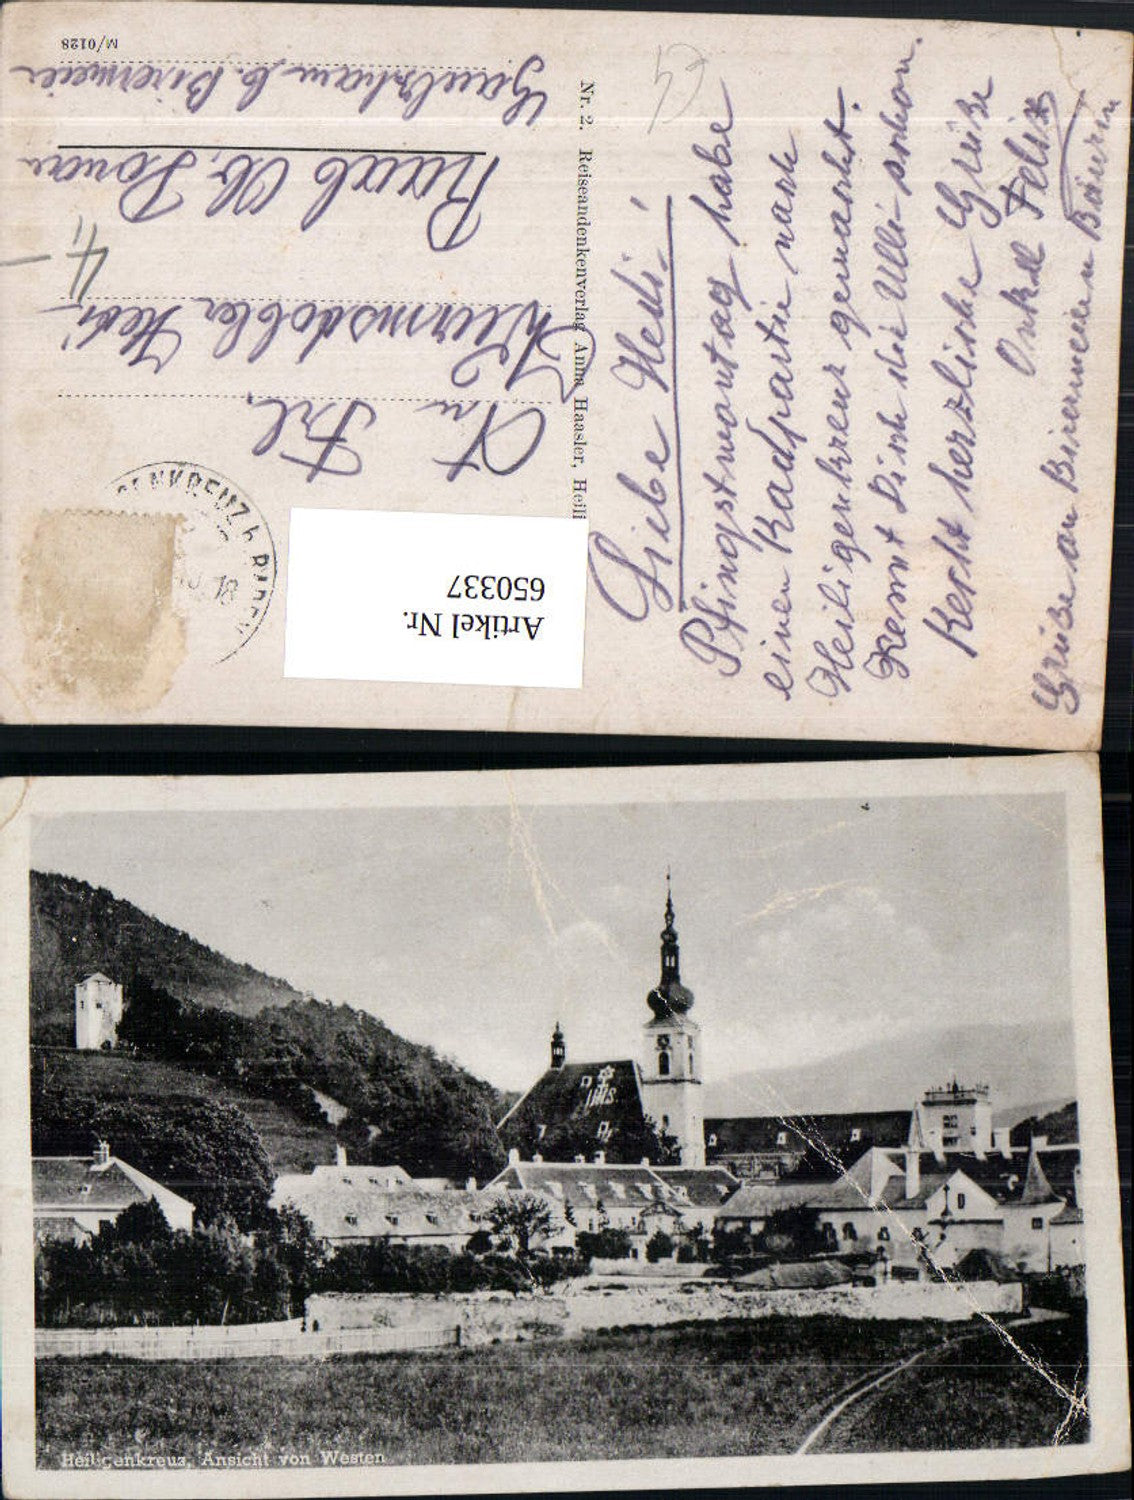 Liebe Hedi!
Pfingstmontag habe
einen Radpartie nach
Heiligenkreuz gemacht.
Kennt Dich die Ulli schon.
Recht herzliche Grüße
Onkel Felix
Grüße an Biermeier Bäurin
Nr. 2. Reiseandenkenverlag Anna Haasler, Heili
An
Frl.
Hedi
Raab Ob. Donau
M/0128
4,-
ENKREUZ b. BADEN
Artikel Nr.
650337
Heiligenkreuz, Ansicht von Westen
IHS